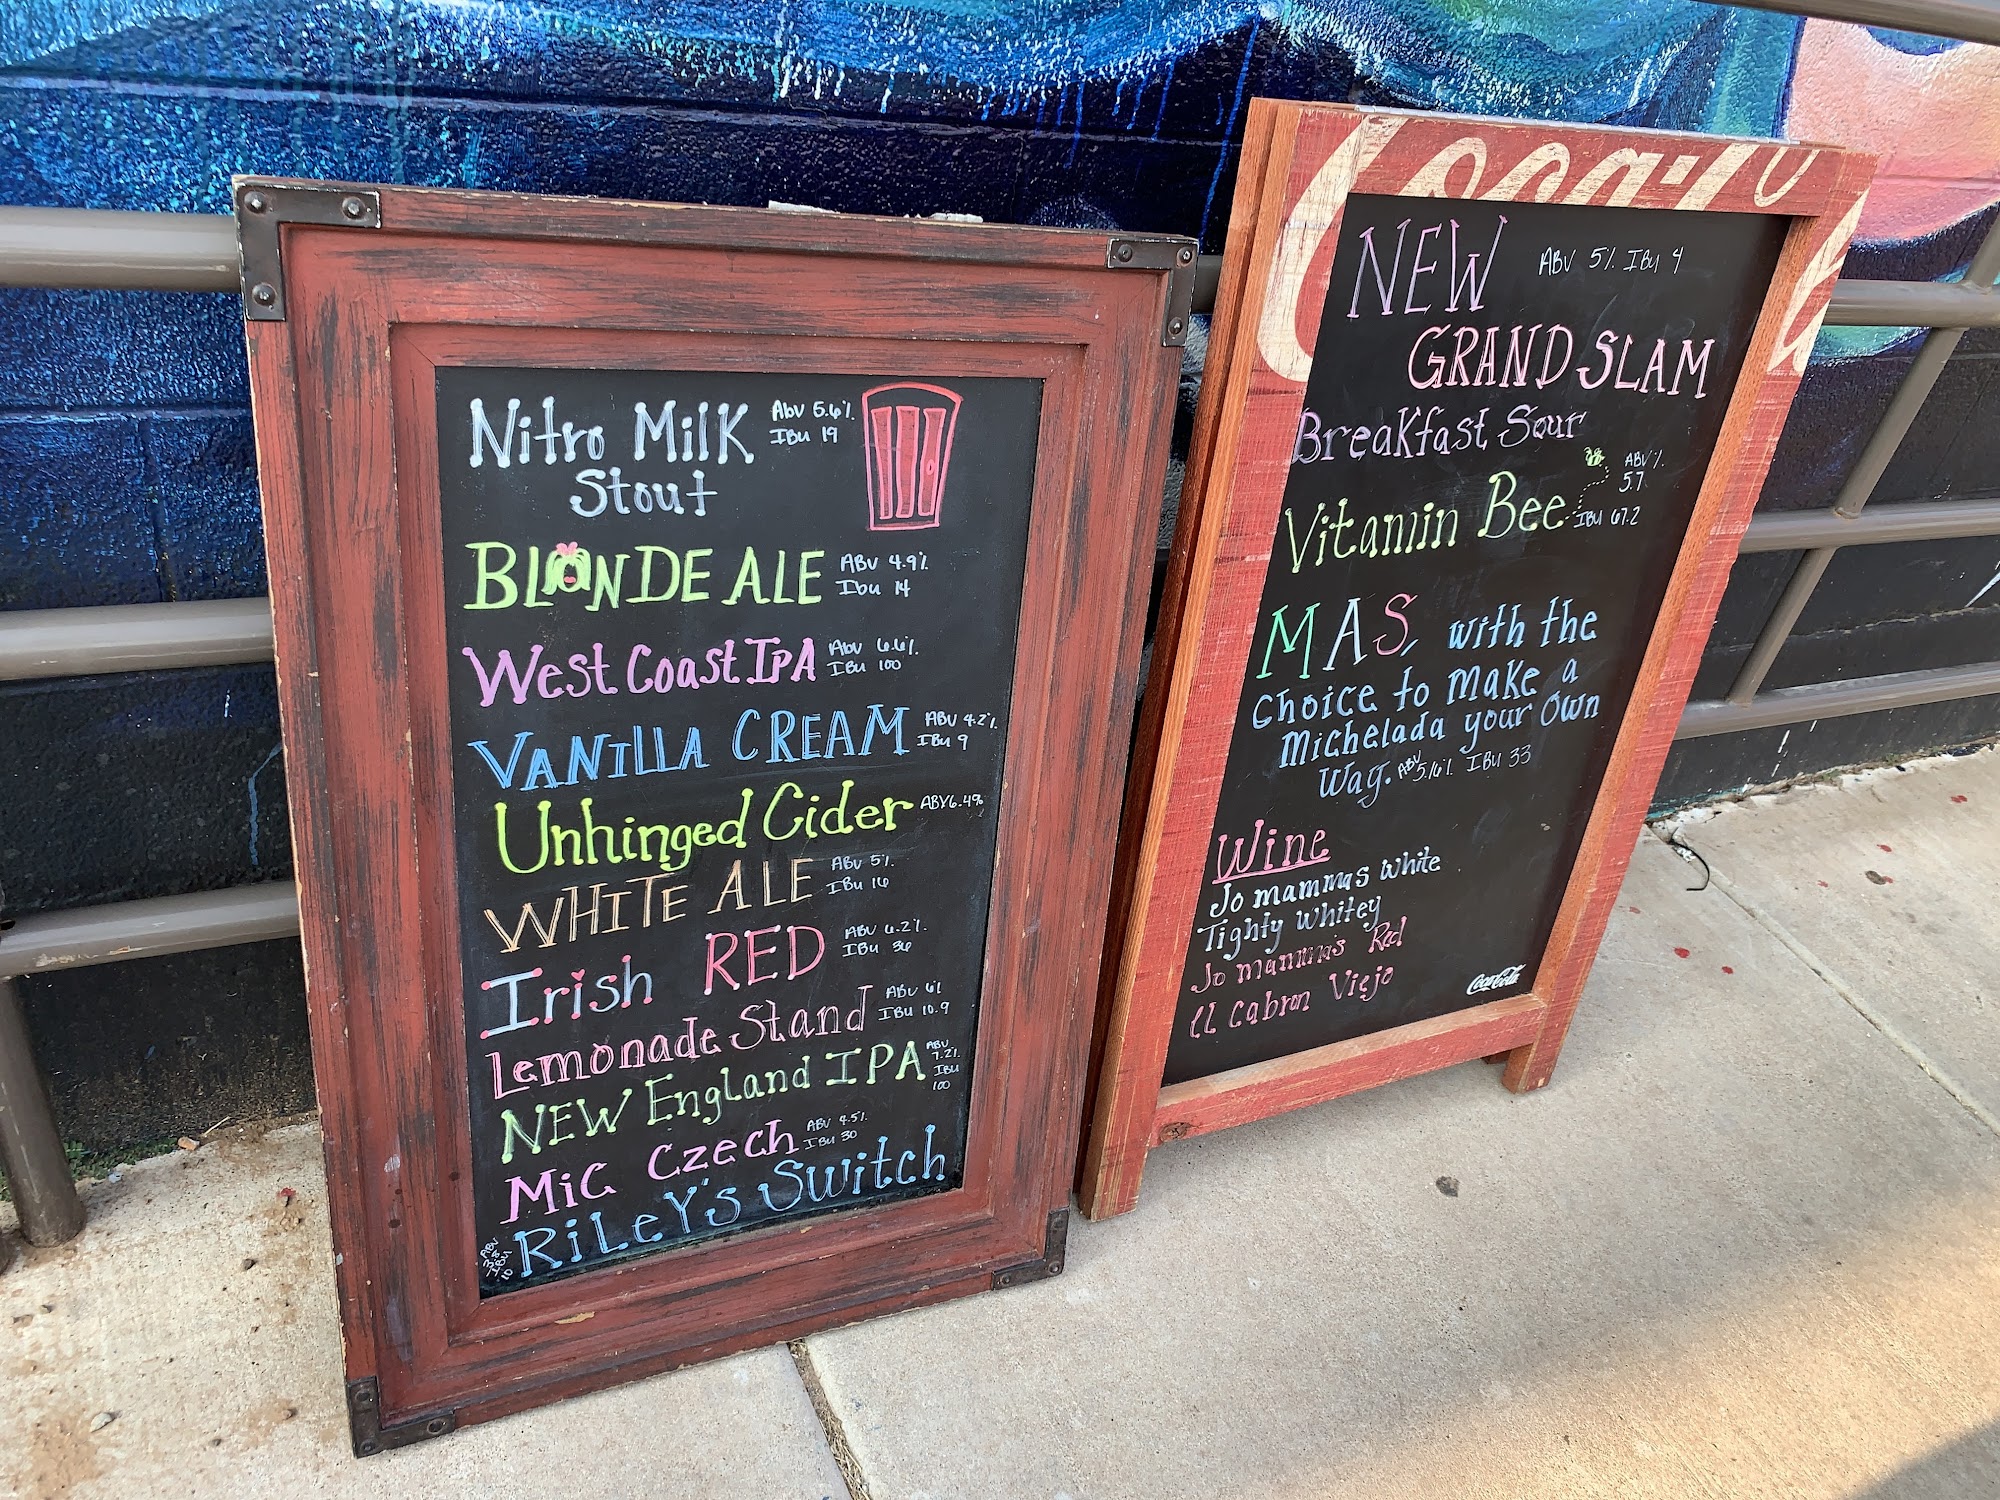 Nitro Milk
Stout
ABV 5.6%
IBU 19
BLONDE ALE
ABV 4.9%
Ibu 14
West Coast IPA
Abv 6.6%
IBU 100
VANILLA CREAM
ABV 4.2%
IBu 9
Unhinged Cider
ABV 6.4%
WHITE ALE
ABV 5%
IBu 16
Irish RED
ABV 6.2%
IBU 36
Lemonade Stand
ABV 6%
IBU 10.9
NEW England IPA
ABV
7.2%
IBU
100
MiC Czech
ABV 4.5%
IBU 30
RiLeY's Switch
ABV
3.8
IBU
10
Coca-Co
NEW
ABV 5% IBU 4
GRAND SLAM
Breakfast Sour
Vitamin Bee
ABV %
5.7
IBU 67.2
MAS, with the
choice to make a
Michelada your own
way.
ABV 5.6% IBU 33
Wine
Jo mammas white
Tighty Whitey
Jo mamma's Red
El Cabron Viejo
Coca-Cola